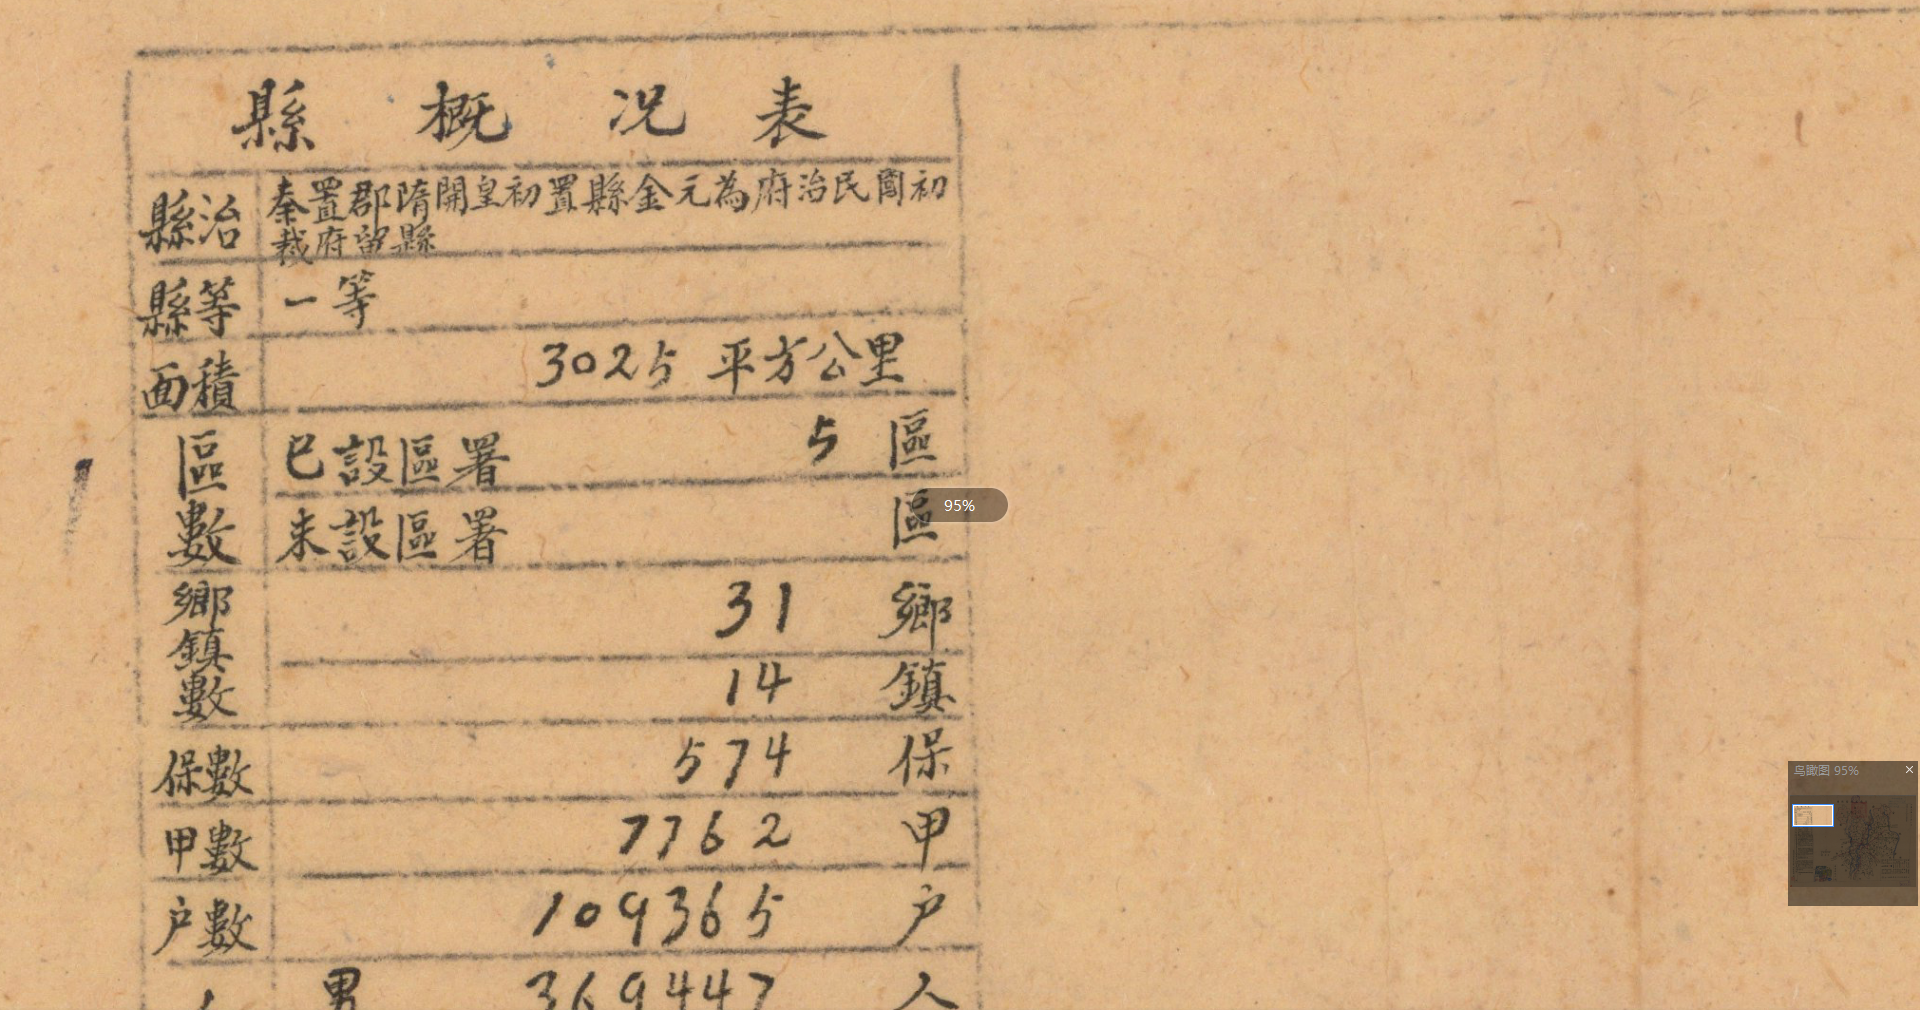 縣概況表
縣治 秦置郡隋開皇初置縣金元為府治民國初
裁府留縣
縣等 一等
面積 3025 平方公里
區數 已設區署 5 區
未設區署 區
95%
鄉鎮數 31 鄉
14 鎮
保數 574 保
鸟瞰图 95%
甲數 7762 甲
户數 109365 户
男 369447 人